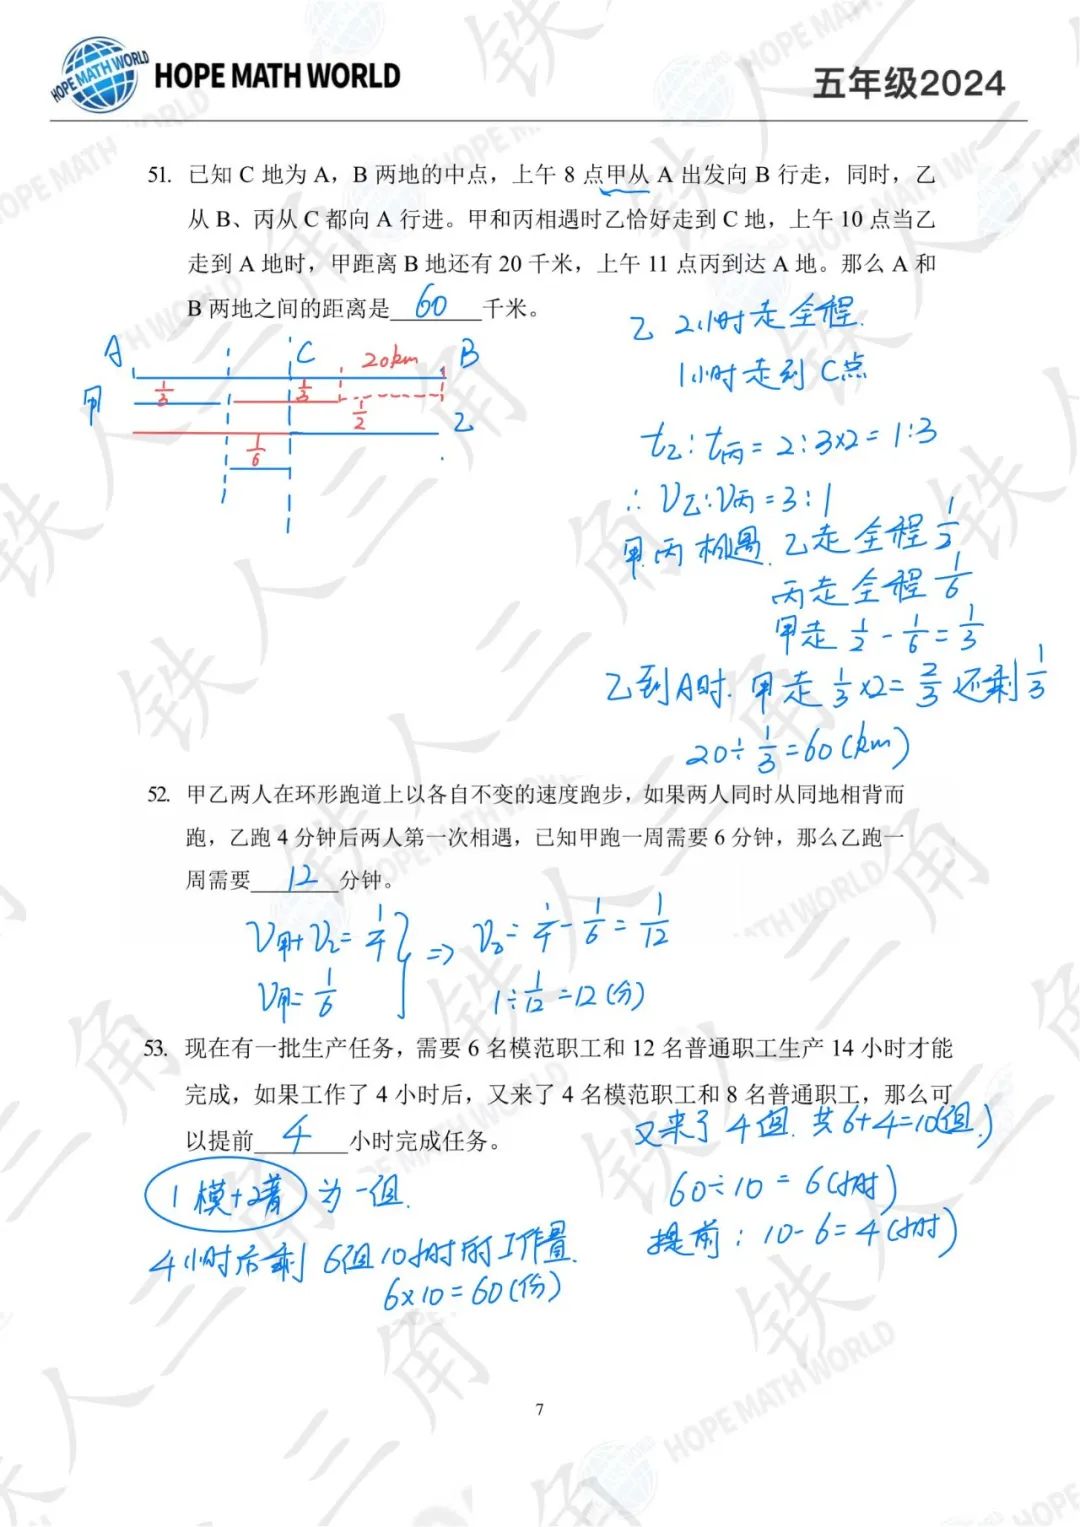 HOPE MATH WORLD
HOPE MATH WORLD
五年级2024
51. 已知 C 地为 A，B 两地的中点，上午 8 点甲从 A 出发向 B 行走，同时，乙
从 B、丙从 C 都向 A 行进。甲和丙相遇时乙恰好走到 C 地，上午 10 点当乙
走到 A 地时，甲距离 B 地还有 20 千米，上午 11 点丙到达 A 地。那么 A 和
B 两地之间的距离是 60 千米。
乙 2小时走全程.
1小时走到 C点
A C 20km B
甲 1/3 1/3 1/2 乙
1/6
t乙:t丙=2:3×2=1:3
∴V乙:V丙=3:1
甲.丙相遇.乙走全程1/2
丙走全程1/6
甲走 1/2-1/6=1/3
乙到A时.甲走1/3×2=2/3还剩1/3
20÷1/3=60(km)
52. 甲乙两人在环形跑道上以各自不变的速度跑步，如果两人同时从同地相背而
跑，乙跑 4 分钟后两人第一次相遇，已知甲跑一周需要 6 分钟，那么乙跑一
周需要 12 分钟。
V甲+V乙=1/4 } => V乙=1/4-1/6=1/12
V甲=1/6
1÷1/12=12(分)
53. 现在有一批生产任务，需要 6 名模范职工和 12 名普通职工生产 14 小时才能
完成，如果工作了 4 小时后，又来了 4 名模范职工和 8 名普通职工，那么可
以提前 4 小时完成任务。
又来了4组.共6+4=10(组.)
1模+2普 为一组.
60÷10=6(小时)
4小时后剩 6组10小时的工作量.
提前:10-6=4(小时)
6×10=60(份)
7